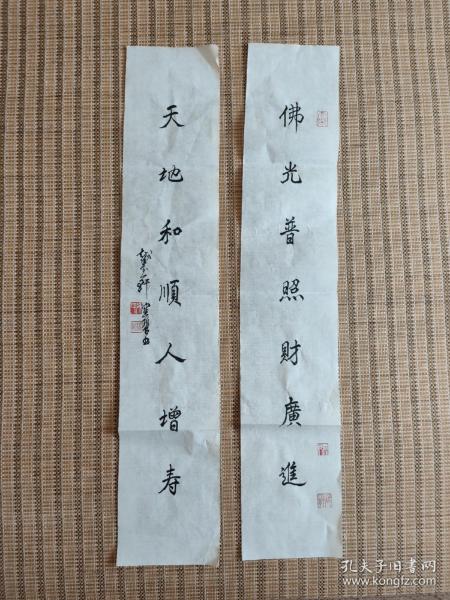 佛光普照財廣進
天地和順人增寿
孔夫子旧书网
www.kongfz.com